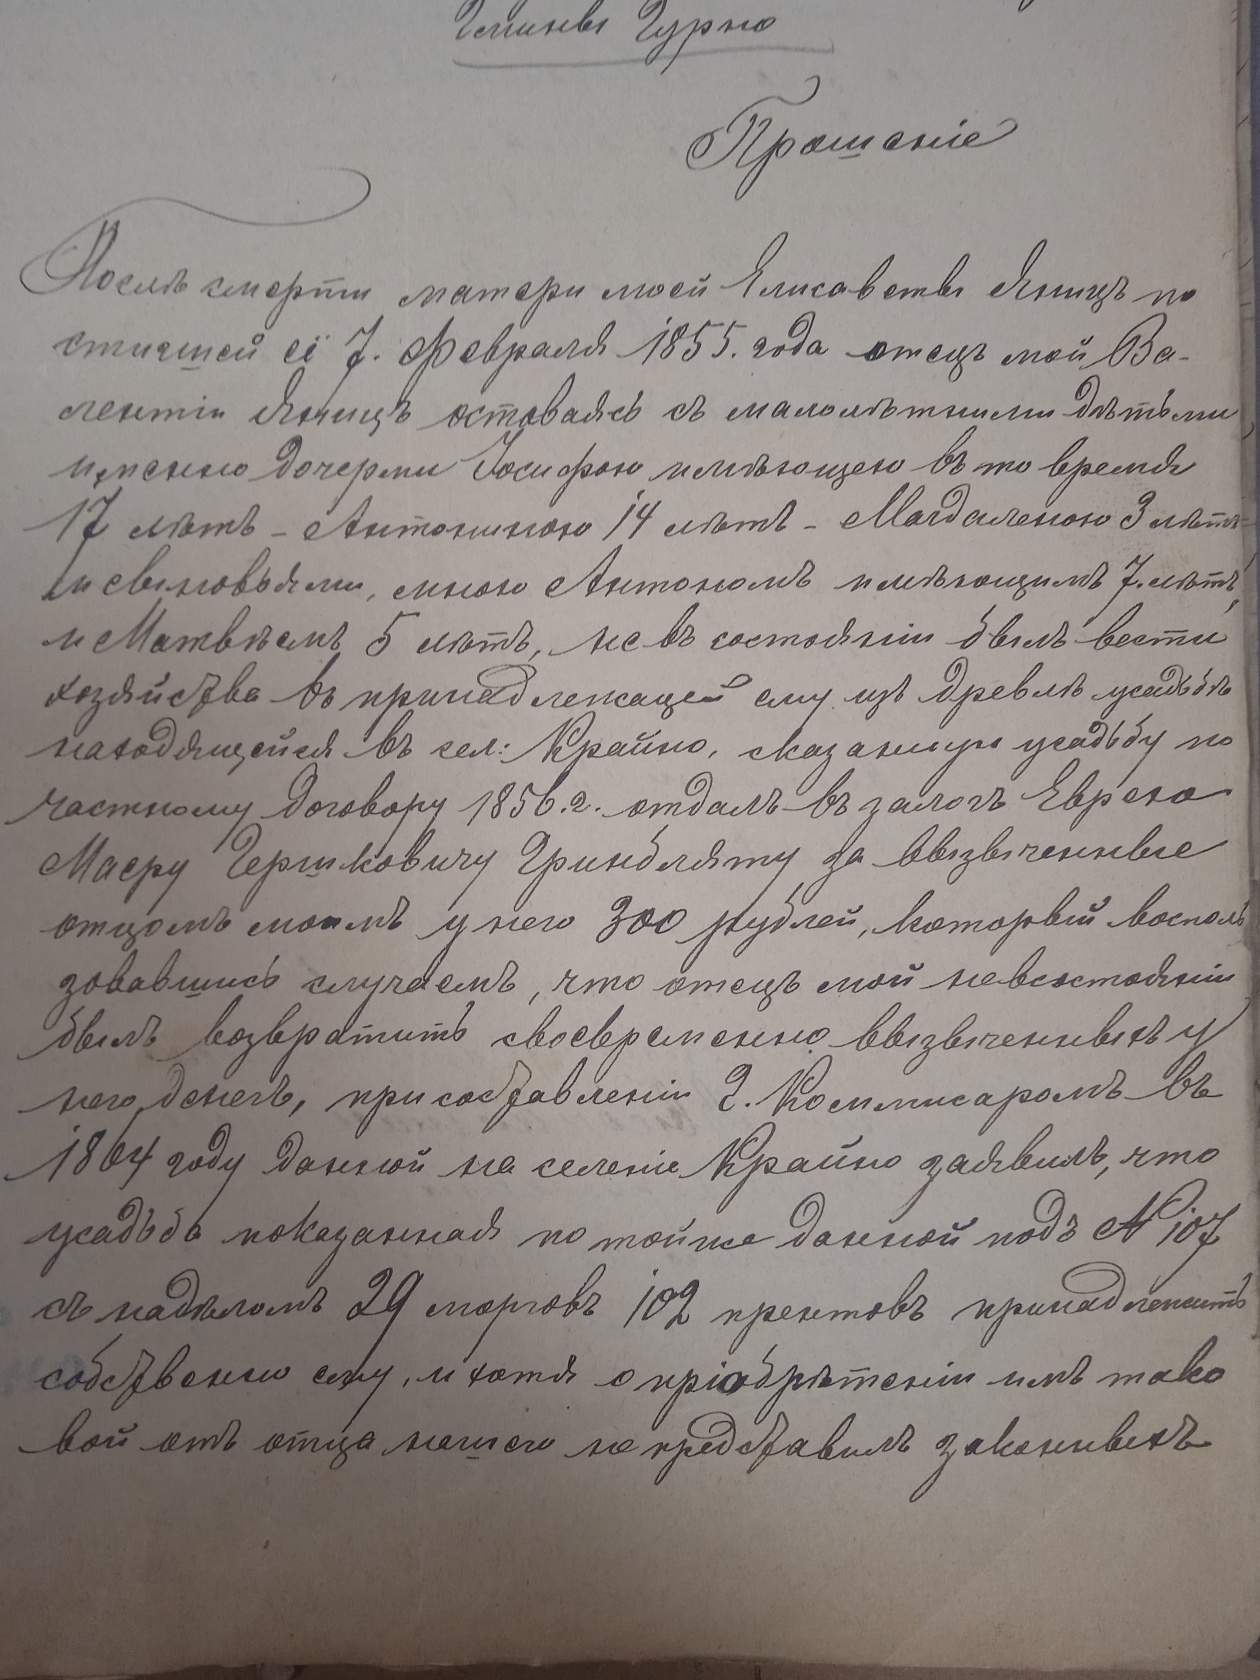 Гмины Гурно
Прошеніе
Послѣ смерти матери моей Елисаветы Яницъ по
стигшей ея 7. Февраля 1855. года отецъ мой Ва-
лентій Яницъ оставаясь съ малолѣтними дѣтьми
именно дочерми Іосифою имѣющею въ то время
17 лѣтъ - Антониною 14 лѣтъ - Магдаленою 3 лѣтъ
и сыновьями, мною Антономъ имѣющимъ 7. лѣтъ,
и Матвѣемъ 5 лѣтъ, не въ состояніи былъ вести
хозяйства въ принадлежащей ему изъ древлѣ усадьбѣ
находящейся въ сел: Крайно, сказанную усадьбу по
частному договору 1856. г. отдалъ въ залогъ Еврею
Маеру Гершковичу Гринбляту за вызыченные
отцомъ моимъ у него 300 рублей, который восполь
зовавшись случаемъ, что отецъ мой невсостояніи
былъ возвратить своевременно вызыченныхъ у
него денегъ, при составленіи Г. Коммисаромъ въ
1864 году данной на селеніе Крайно заявилъ, что
усадьба показанная по тойже данной подъ № 107
съ надѣломъ 29 морговъ 102 прентовъ принадлежитъ
собственно ему, и хотя о пріобрѣтеніи имъ тако
вой отъ отца нашего не представилъ законныхъ